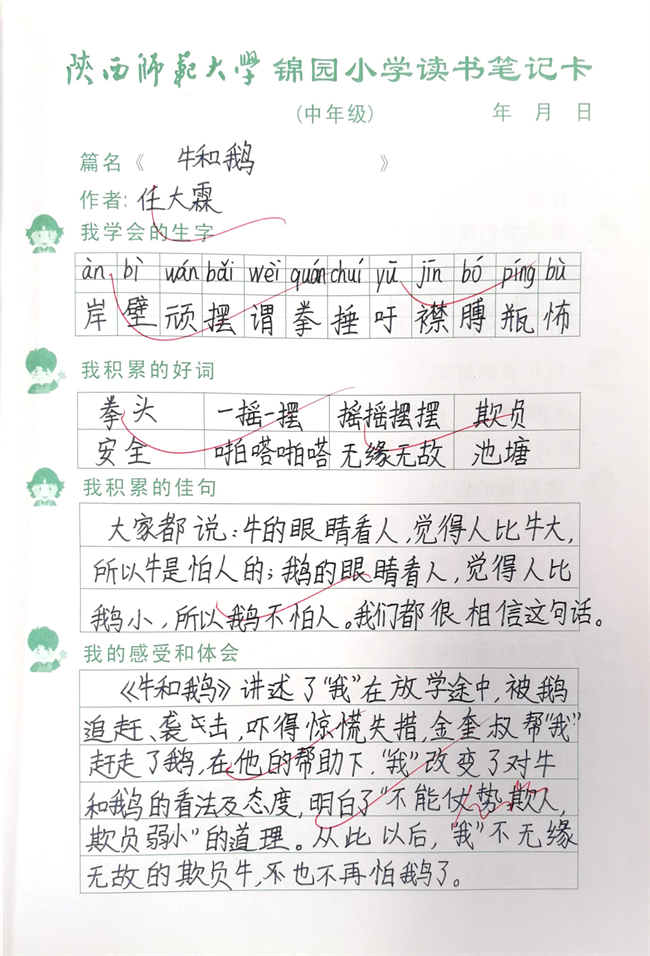 陕西师范大学锦园小学读书笔记卡
(中年级) 年 月 日
篇名《 牛和鹅 》
作者: 任大霖
我学会的生字
àn bì wán bǎi wèi quán chuí yū jīn bó píng bù
岸 壁 顽 摆 谓 拳 捶 吁 襟 膊 瓶 怖
我积累的好词
拳头 一摇一摆 摇摇摆摆 欺负
安全 啪嗒啪嗒 无缘无故 池塘
我积累的佳句
大家都说:牛的眼睛看人,觉得人比牛大,
所以牛是怕人的;鹅的眼睛看人,觉得人比
鹅小,所以鹅不怕人。我们都很相信这句话。
我的感受和体会
《牛和鹅》讲述了“我”在放学途中,被鹅
追赶、袭击,吓得惊慌失措,金奎叔帮“我”
赶走了鹅,在他的帮助下,“我”改变了对牛
和鹅的看法及态度,明白了“不能仗势欺人,
欺负弱小”的道理。从此以后,“我”不无缘
无故的欺负牛,不也不再怕鹅了。